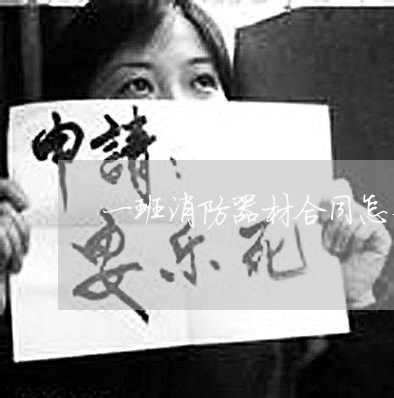 申請：
一班消防器材合同怎
要乐死